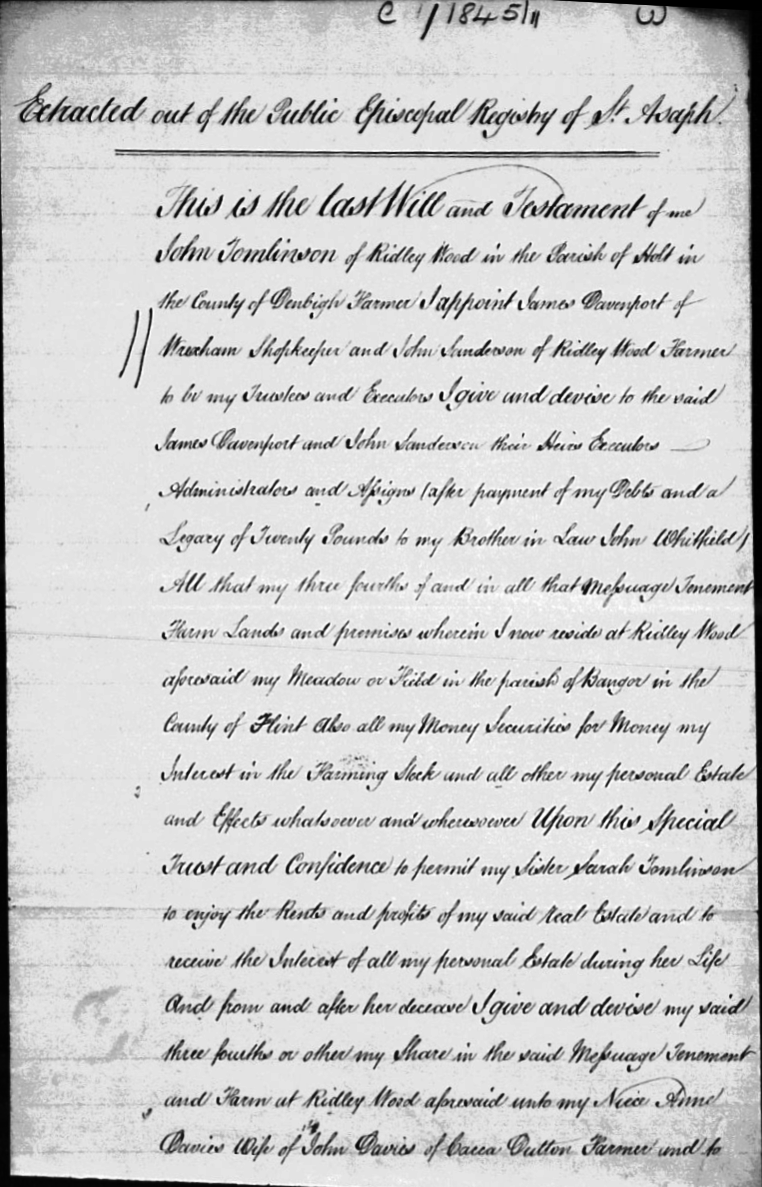 C 1/1845 W
Extracted out of the Public Episcopal Registry of St. Asaph.
This is the last Will and Testament of me
John Tomlinson of Ridley Wood in the Parish of Holt in
the County of Denbigh Farmer I appoint James Davenport of
Wrexham Shopkeeper and John Sanderson of Ridley Wood Farmer
to be my Trustees and Executors I give and devise to the said
James Davenport and John Sanderson their Heirs Executors —
Administrators and Assigns (after payment of my Debts and a
Legacy of Twenty Pounds to my Brother in Law John Whitfield)
All that my three fourths of and in all that Messuage Tenement
Farm Lands and premises wherein I now reside at Ridley Wood
aforesaid my Meadow or Field in the parish of Bangor in the
County of Flint Also all my Money Securities for Money my
Interest in the Farming Stock and all other my personal Estate
and Effects whatsoever and wheresoever Upon this Special
Trust and Confidence to permit my Sister Sarah Tomlinson
to enjoy the Rents and profits of my said real Estate and to
receive the Interest of all my personal Estate during her Life
And from and after her decease I give and devise my said
three fourths or other my Share in the said Messuage Tenement
and Farm at Ridley Wood aforesaid unto my Niece Anne
Davies Wife of John Davies of Cacca Dutton Farmer and to